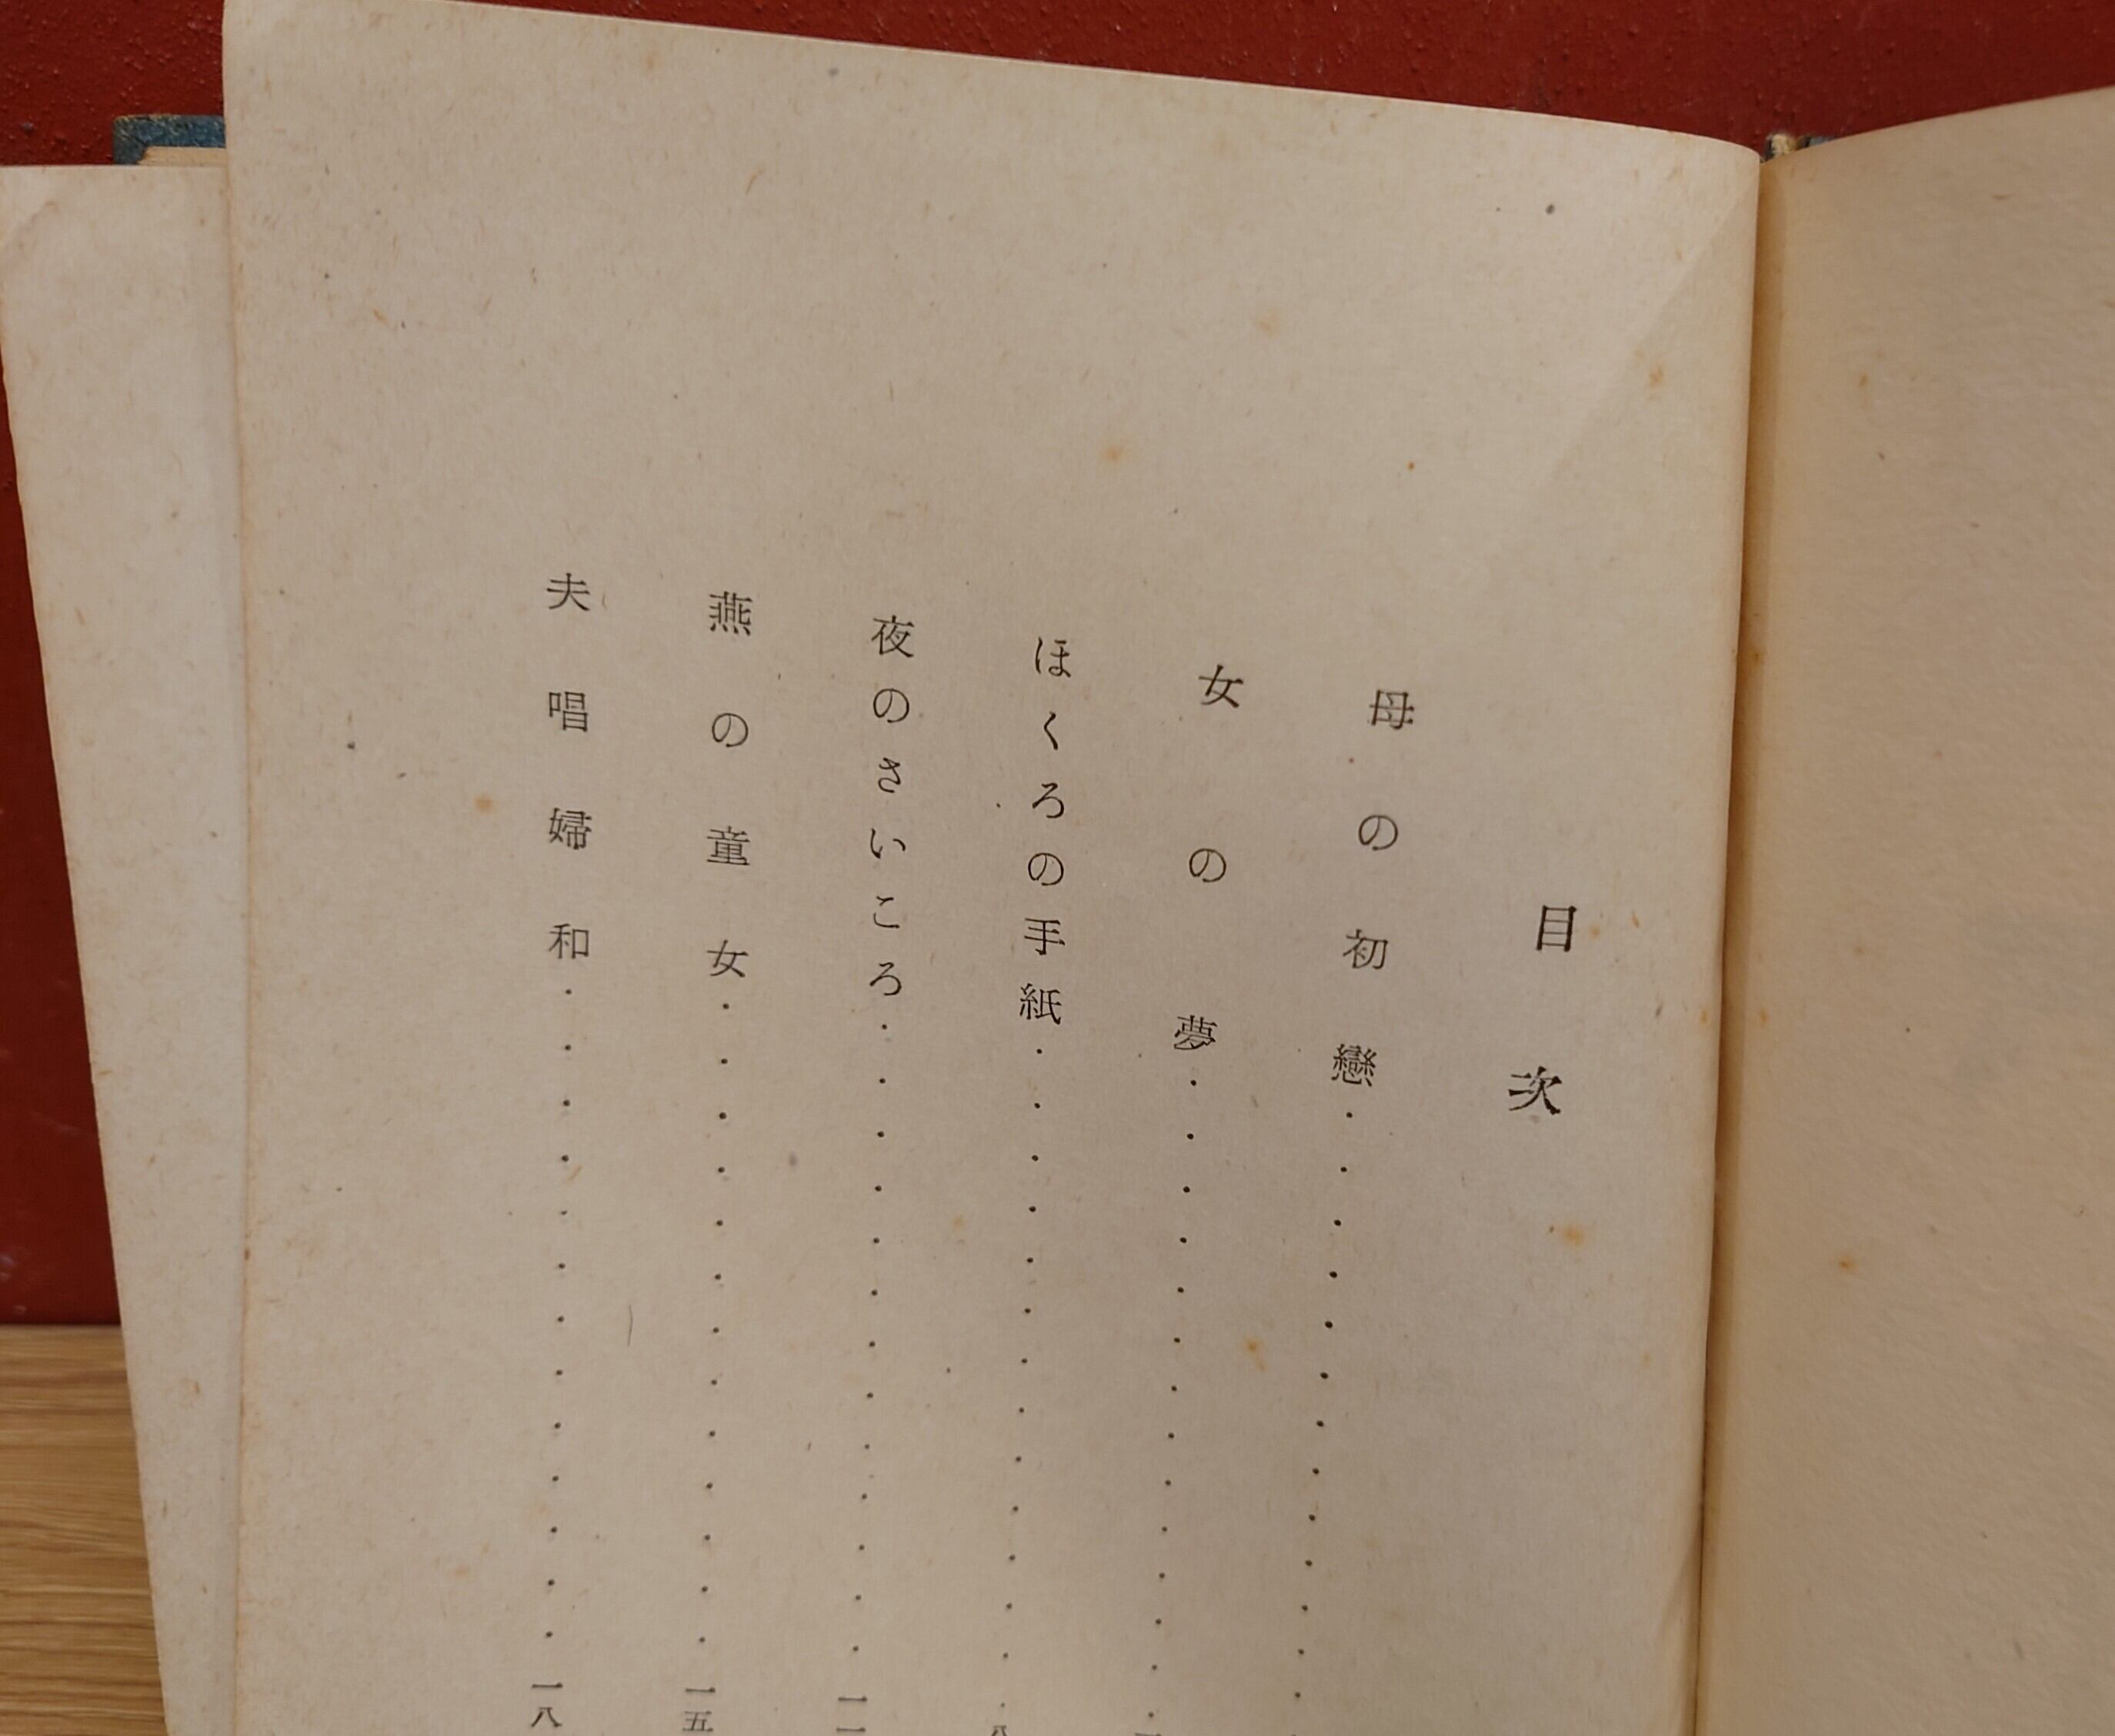 目次
母の初戀
女の夢
ほくろの手紙
夜のさいころ
燕の童女・・・・・・・・・・・・・一五
夫唱婦和・・・・・・・・・・・・・一八